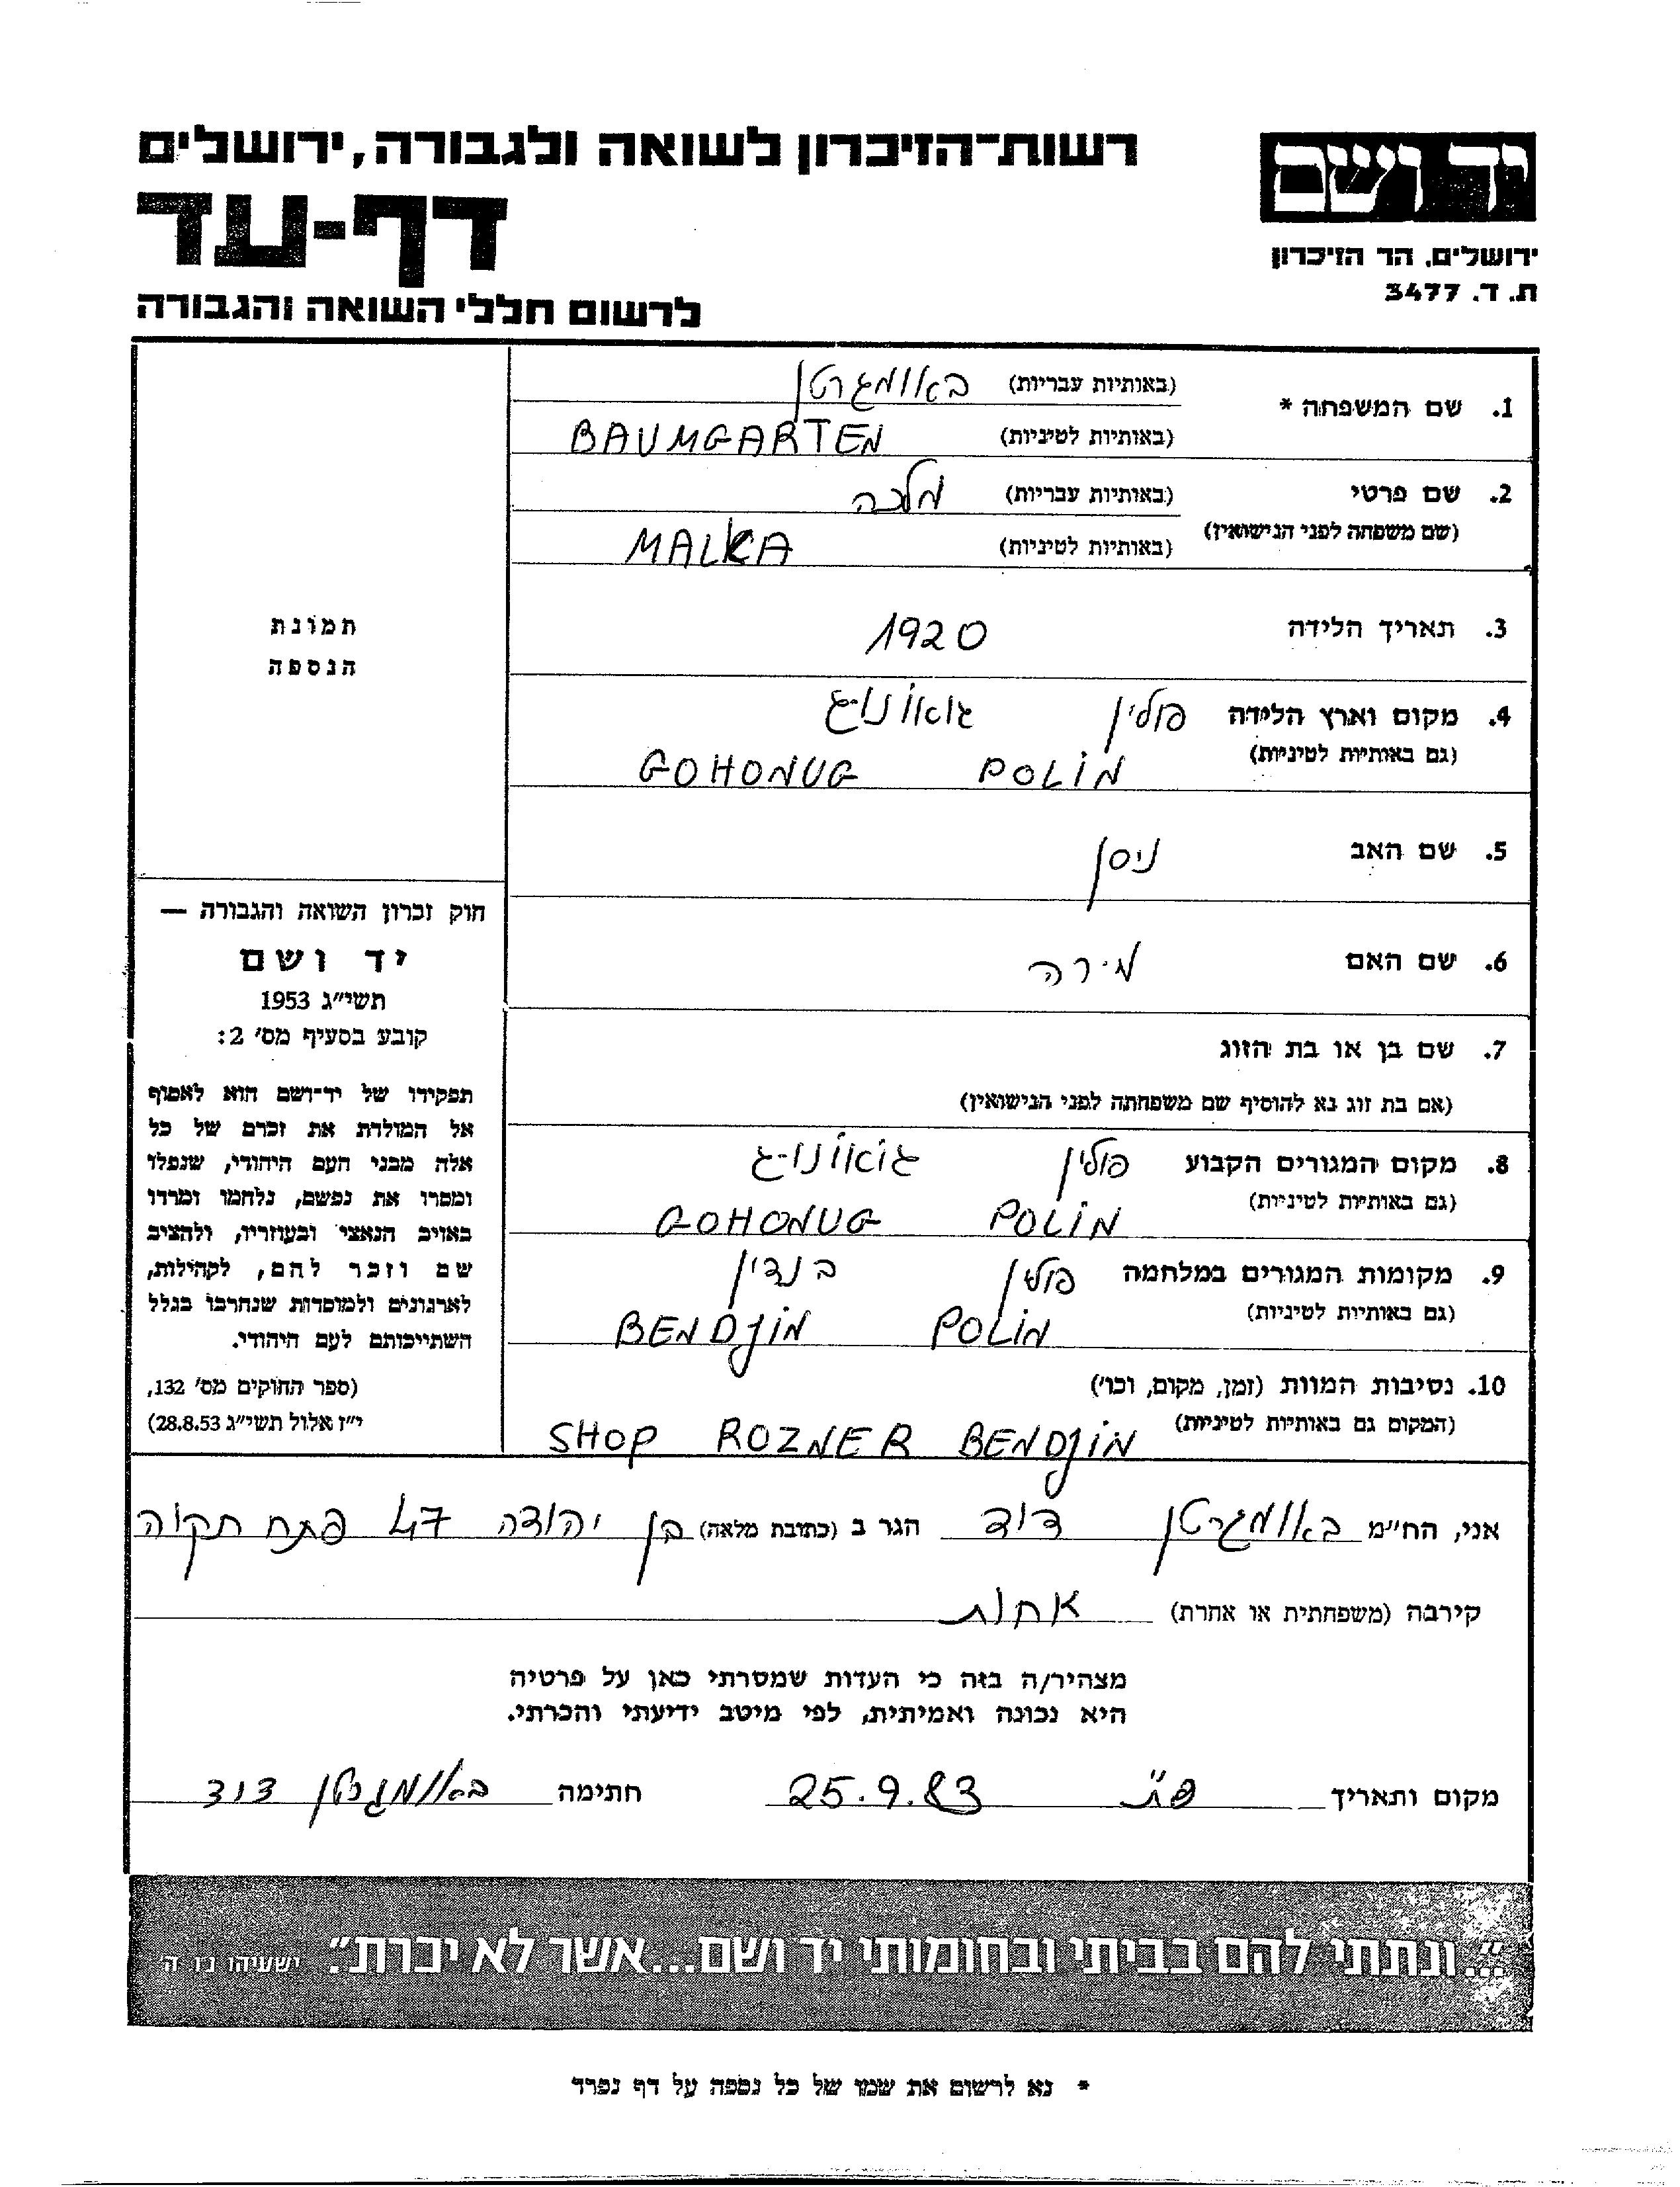 רשות־הזיכרון לשואה ולגבורה, ירושלים
דף-עד
לרשום חללי השואה והגבורה
יד ושם
ירושלים, הר הזיכרון
ת. ד. 3477
1. שם המשפחה * (באותיות עבריות) באוומגרטן
(באותיות לטיניות) BAUMGARTEN
2. שם פרטי (באותיות עבריות) מלכה
(שם משפחה לפני הנישואין) (באותיות לטיניות) MALKA
3. תאריך הלידה 1920
4. מקום וארץ הלידה פולין
(גם באותיות לטיניות) POLIN GOHONUG
5. שם האב ניסן
6. שם האם מירה
7. שם בן או בת הזוג
(אם בת זוג נא להוסיף שם משפחתה לפני הנישואין)
8. מקום המגורים הקבוע פולין
(גם באותיות לטיניות) POLIN GOHONUG
9. מקומות המגורים במלחמה פולין בנדין
(גם באותיות לטיניות) POLIN BENDJIN
10. נסיבות המוות (זמן, מקום, וכו')
(המקום גם באותיות לטיניות) SHOP ROZNER BENDJIN
תמונת
הנספה
חוק זכרון השואה והגבורה —
יד ושם
תשי״ג 1953
קובע בסעיף מס׳ 2:
תפקידו של יד־ושם הוא לאסוף
אל המולדת את זכרם של כל
אלה מבני העם היהודי, שנפלו
ומסרו את נפשם, נלחמו ומרדו
באויב הנאצי ובעוזריו, ולהציב
שם וזכר להם, לקהילות,
לארגונים ולמוסדות שנחרבו בגלל
השתייכותם לעם היהודי.
(ספר החוקים מס׳ 132,
י״ז אלול תשי״ג 28.8.53)
אני, הח״מ באוומגרטן דוד הגר ב (כתובת מלאה) בן יהודה 47 פתח תקוה
קירבה (משפחתית או אחרת) אחות
מצהיר/ה בזה כי העדות שמסרתי כאן על פרטיה
היא נכונה ואמיתית, לפי מיטב ידיעתי והכרתי.
מקום ותאריך פ״ת 25.9.83 חתימה באוומגרטן דוד
״...ונתתי להם בביתי ובחומותי יד ושם...אשר לא יכרת״. ישעיהו נו ה
* נא לרשום את שמו של כל נספה על דף נפרד